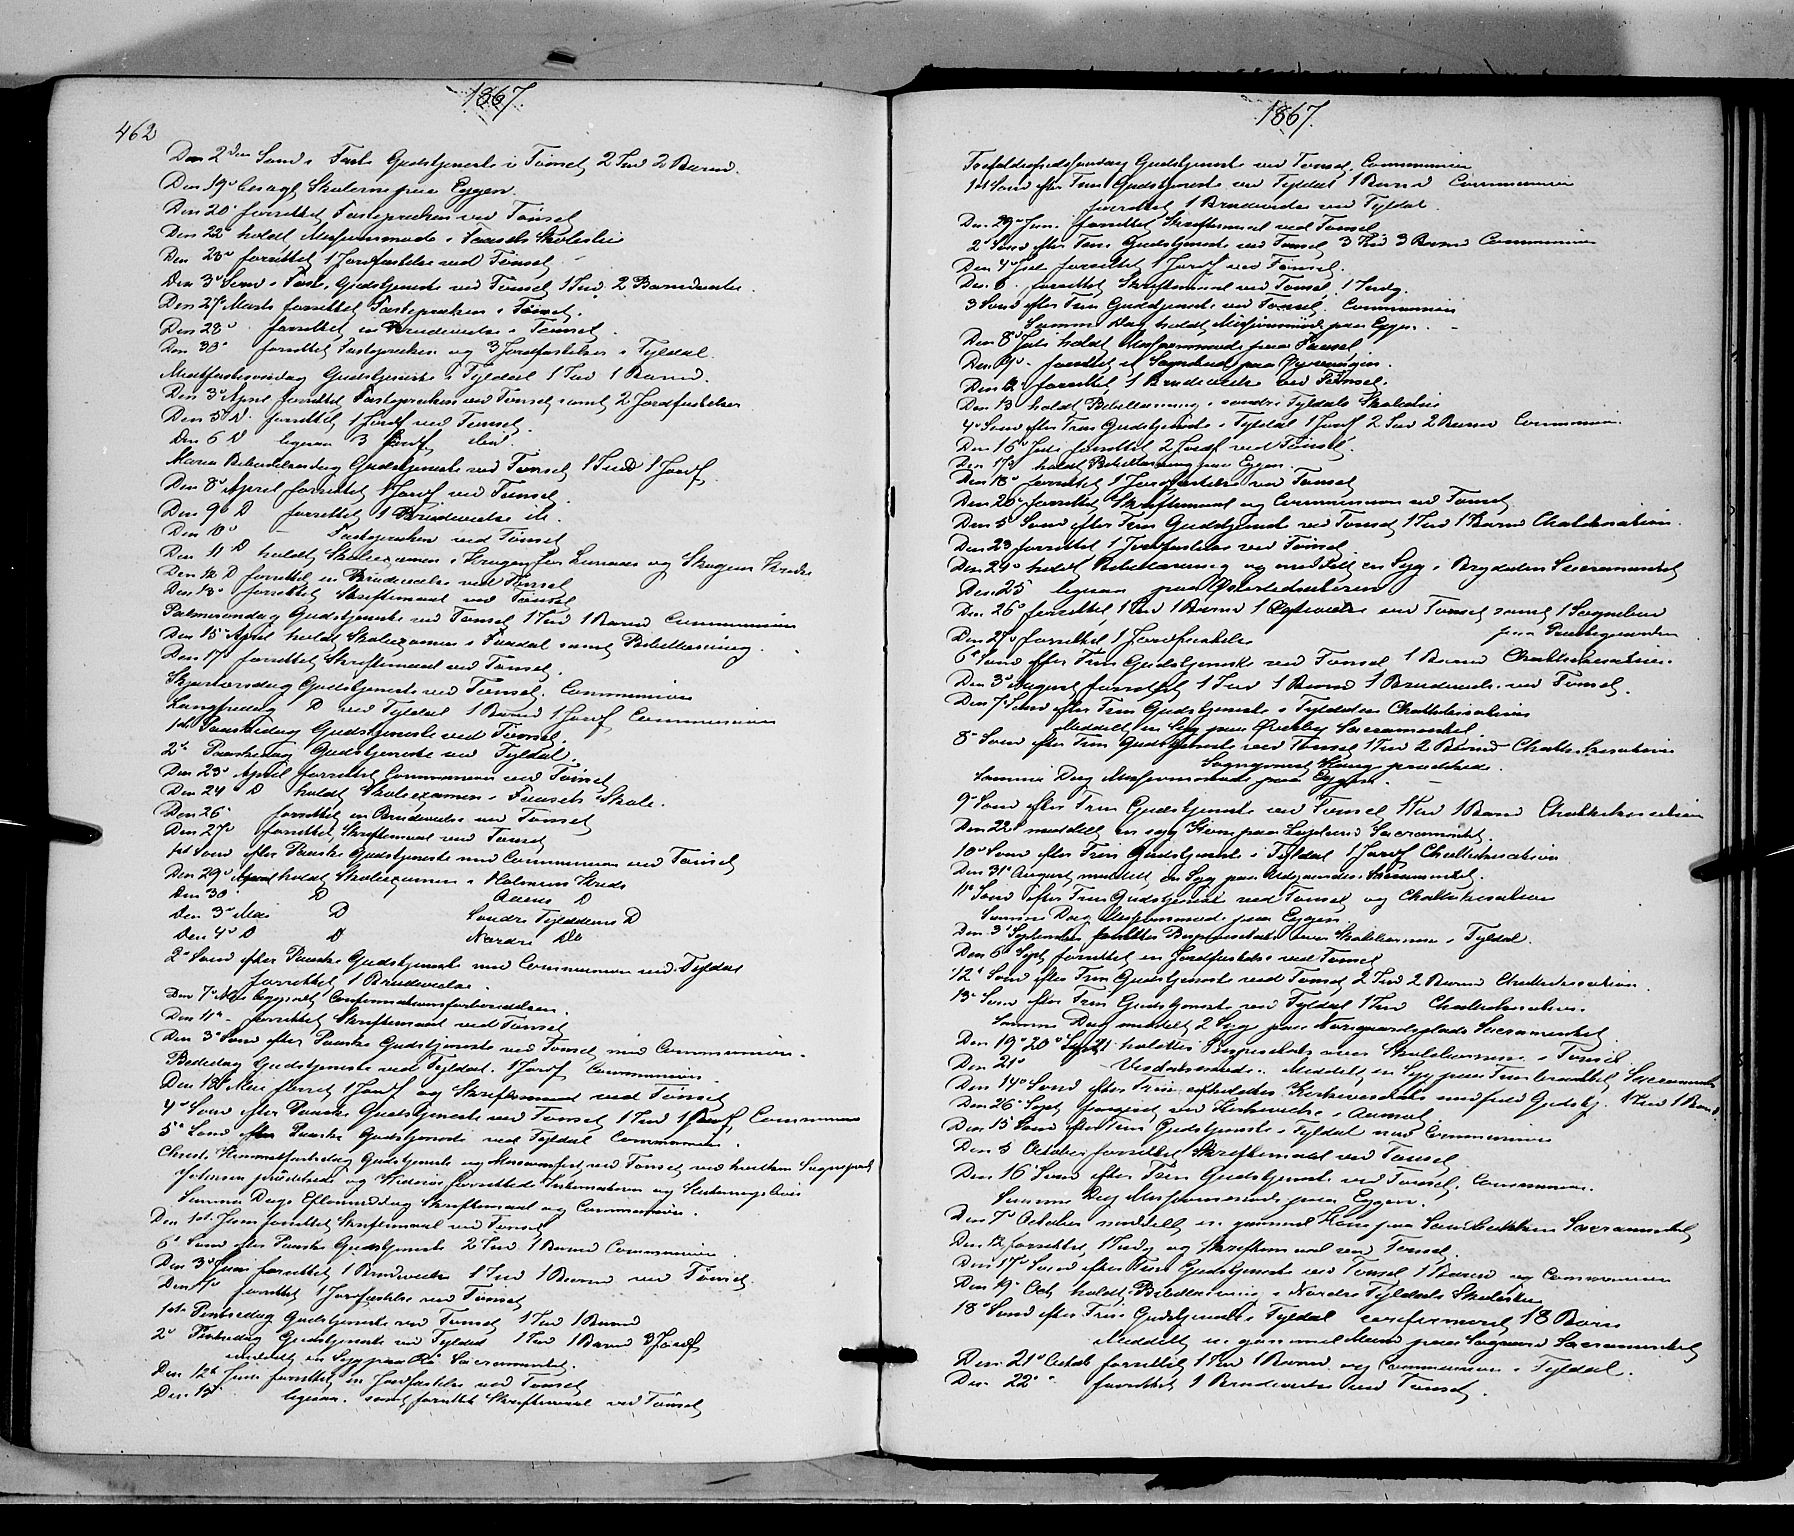 462
1867.
Den 2den Sønd. i Faste Gudstjeneste i Tønset 2 Ind 2 Barnd.
Den 19de besøgt Skolerne paa Eggen.
Den 20de forrettet Fasteprædiken ved Tönset
Den 22de holdt Missionsmøde i Faasets Skolestue
Den 23de forrettet 1 Jordfæstelse ved Tönset
Den 3de Sønd. i Faste Gudstjeneste ved Tönset 1 Ind. 2 Barnedaabe.
Den 27de Marts forrettet Fasteprædiken i Tönset.
Den 28de forrettet en Brudevielse i Tönset.
Den 30te forrettet Fasteprædiken og 3 Jordfæstelser i Tyldal.
Midfastesøndag Gudstjeneste i Tyldal 1 Ind 1 Barnd.
Den 3de April forrettet Fasteprædiken ved Tönset samt 2 Jordfæstelser
Den 5te D forrettet 1 Jordf ved Tönset.
Den 6 D ligesaa 3 Jordf
Maria Bebudelsesdag Gudstjeneste ved Tönset 1 Ind 1 Jordf.
Den 8de April forrettet 1 Jordf ved Tönset.
Den 9de D forrettet 1 Brudevielse
Den 10de - Fasteprædiken ved Tönset
Den 11 D holdt Skoleexamen i og Skogens Kreds
Den 12 D forrettet en Brudevielse ved Tönset
Den 13de forrettet Skriftemaal ved Tönset
Palmesøndag Gudstjeneste ved Tönset 1 Ind 1 Barnd Communion
Den 15de April holdt Skoleexamen i samt Bibellæsning.
Den 17de forrettet Skriftemaal ved Tönset.
Skjærtorsdag Gudstjeneste ved Tönset. Communion
Langfredag D ved Tyldal 1 Barnd 1 Jordf Communion
1ste Paaskedag Gudstjeneste ved Tönset.
2den Paaskedag Gudstjeneste ved Tyldal.
Den 23de April forrettet Communion ved Tönset
Den 24 D holdt Skoleexamen i Faasets Skole.
Den 26 forrettet en Brudevielse ved Tönset
Den 27de forrettet Skriftemaal ved Tönset
1ste Sønd efter Paaske Gudstjeneste med Communion ved Tönset
Den 29de April holdt Skoleexamen i Holmens Kreds
Den 30 D Aaens D
Den 3de Mai D Søndre Tyldalens D
Den 4de D D Nordre Do
2den Sønd efter Paaske Gudstjeneste med Communion ved Tyldal
forrettet 1 Brudevielse.
Den 7de Mai begyndt Confirmationsforberedelsen.
Den 11te - forrettet Skriftemaal ved Tönset
Den 3de Sønd efter Paaske Gudstjeneste ved Tönset med Communion.
Bededag Gudstjeneste ved Tyldal. 1 Jordf Communion.
Den 18de Mai forret 1 Jordf og Skriftemaal ved Tönset
4de Sønd efter Paaske Gudstjeneste ved Tönset 1 Ind 1 Jordf, Communion
5te Sønd efter Paaske Gudstjeneste ved Tyldal Communion.
Christi Himmelfartsdag Gudstjeneste og Missionsfest ved Tönset ved hvilken Sognepræst
prædikede og forrettede og Slutningsbøn
Samme Dags Eftermiddag Skriftemaal og Communion.
Den 1ste Juni forrettet Skriftemaal ved Tönset
6te Sønd efter Paaske Gudstjeneste 2 Ind 1 Barnd Communion
Den 3de Juni forrettet 1 Brudevielse 1 Ind 1 Barnd ved Tönset.
Den 7de forrettet 1 Jordfæstelse ved Tönset
1ste Pintsedag Gudstjeneste ved Tönset 1 Ind 1 Barnd
2den Pintsedag Gudstjeneste ved Tyldal 1 Ind 1 Barnd 3 Jordf
meddelt en Syg paa Sacramentet.
Den 12te Juni forrettet en Jordfæstelse ved Tönset
Den 15 ligesaa. samt forrettet Skriftemaal ved Tönset
1867.
Trefoldighedssøndag Gudstjeneste ved Tönset Communion
1ste Sønd efter Trin Gudstjeneste ved Tyldal 1 Barnd Communion
forrettet 1 Brudevielse ved Tyldal.
Den 29de Juni forrettet Skriftemaal ved Tönset
2 Sønd efter Trin Gudstjeneste ved Tönset 3 Ind 3 Barnd Communion
Den 4de Juli forrettet 1 Jordf ved Tönset.
Den 6 forrettet Skriftemaal ved Tönset. 1 Indg.
3 Sønd efter Trin Gudstjeneste ved Tönset. Communion
Samme Dag holdt Missionsmøde paa Eggen.
Den 8de Juli holdt Missionsmøde paa Faaset
Den 9de forrettet et Sognebud paa
Den 12 forrettet 1 Brudevielse ved Tönset.
Den 13 holdt Bibellæsning i søndre Tyldals Skolestue
4de Sønd efter Trin Gudstjeneste i Tyldal 1 Jordf 2 Ind 2 Barnd Communion.
Den 16de Juli forrettet 2 Jordf ved Tönset.
Den 17de holdt Bibellæsning paa Eggen.
Den 18de forrettet 1 Jordfæstelse ved Tönset
Den 20de forrettet Skriftemaal og Communion ved Tönset
Den 5 Sønd efter Trin Gudstjeneste ved Tönset 1 Ind 1 Barnd Chatekisation.
Den 23 forrettet 1 Jordfæstelse ved Tönset
Den 24de holdt Bibellæsning og meddelt en Syg i Brydalen Sacramentet
Den 25 ligesaa paa
Den 26de forrettet 1 Ind 1 Barnd 1 ved Tönset samt 1 Sognebud
paa Præstegaarden
Den 27de forrettet 1 Jordfæstelse
6te Sønd efter Trin Gudstjeneste ved Tönset 1 Barnd Chatekisation.
Den 3de August forrettet 1 Ind 1 Barnd 1 Brudevielse ved Tönset.
Den 7de Sønd efter Trin Gudstjeneste i Tyldalen Chatekisation
Meddelt en Syg paa Sacramentet.
8de Sønd efter Trin Gudstjeneste ved Tönset 1 Ind 2 Barnd Chatekisation
Sognepræst prædikede.
Samme Dag Missionsmøde paa Eggen.
9de Sønd efter Trin Gudstjeneste ved Tönset 1 Ind 1 Barnd Chatekisation
Den 22de meddelt en syg Kone paa Sacramentet.
10de Sønd efter Trin Gudstjeneste i Tyldal 1 Jordf Chatekisation
Den 31te August meddelt en Syg paa Sacramentet.
11te Sønd efter Trin Gudstjeneste ved Tönset og Chatekisation
Samme Dag Missionsmøde paa Eggen.
Den 3de September Bispevisitats over Skolebørnene i Tyldal.
Den 6 Sept forrettet en Jordfæstelse ved Tönset
12te Sønd efter Trin Gudstjeneste ved Tönset 2 Ind 2 Barnd Chatekisation.
13de Sønd efter Trin Gudstjeneste ved Tyldal 1 Ind Chatekisation.
Samme Dag meddelt 2 Syge paa Sacramentet.
Den 19de 20de Sept holdtes Bispevisitats over Skolebørnene i Tönset
Den 21de Meddelt en Syg paa Sacramentet
Den 14de Sønd efter Trin afholdtes Kirkevisitats med fuld Gudstj. 1 Ind 1 Barnd
Den 26 Sept ved Kirkevielse i Aamot
Den 15 Sønd efter Trin Gudstjeneste i Tyldal med Communion
Den 5 October forrettet Skriftemaal ved Tönset
Den 16 Sønd efter Trin Gudstjeneste ved Tönset. Communion.
Samme Dag Missionsmøde paa Eggen.
Den 7de October meddelt en gammel Kone paa Sacramentet
Den 12 forrettet 1 Indg og Skriftemaal ved Tönset.
Den 17de Sønd efter Trin Gudstjeneste ved Tönset 1 Barnd og Communion
Den 19de Oct holdt Bibellæsning i Nordre Tyldals Skolestue
18de Sønd efter Trin Gudstjeneste i Tyldal confirmeret 18 Børn
Meddelt en gammel Mand paa Sacramentet
Den 21de Octob forrettet 1 Ind 1 Barnd og Communion i Tyldal.
Den 22de forrettet 1 Brudevielse ved Tönset.